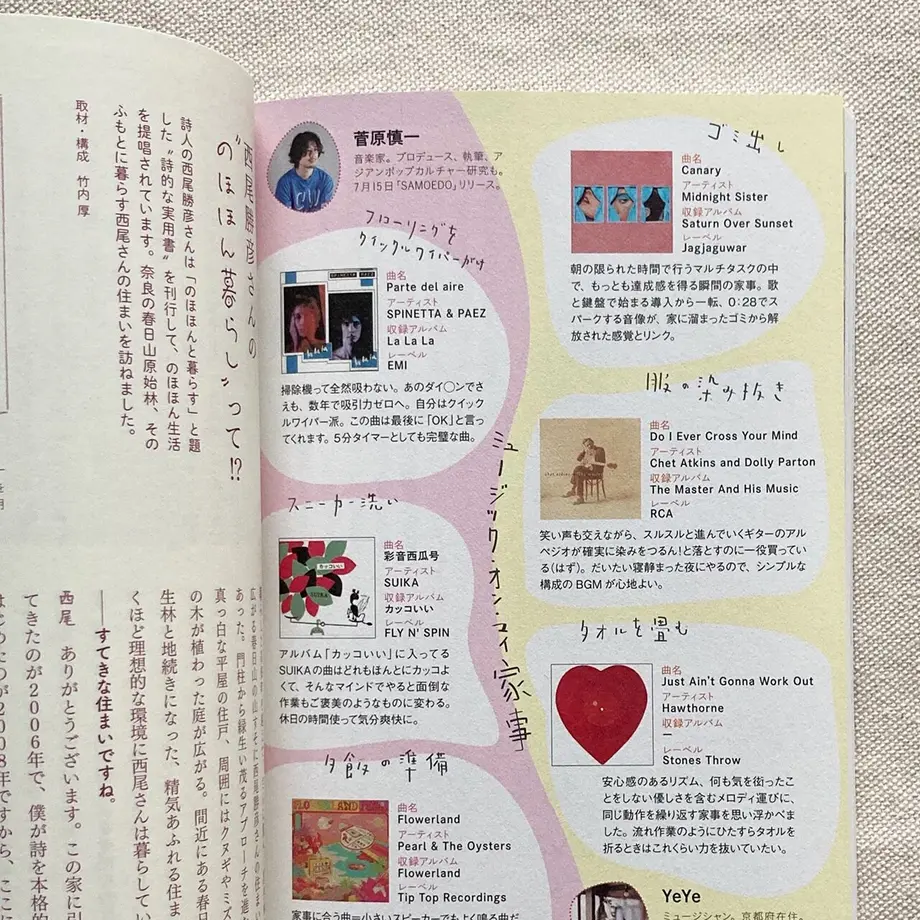 西尾勝彦さんの
“のほほん暮らし”って⁉
詩人の西尾勝彦さんは「のほほんと暮らす」と題
した“詩的な実用書”を刊行して、のほほん生活
を提唱されています。奈良の春日山原始林、その
ふもとに暮らす西尾さんの住まいを訪ねました。
取材・構成 竹内 厚
広がる春日山の山すそに西尾勝彦さんの住まい
あった。門柱から緑生い茂るアプローチを進む
真っ白な平屋の住戸、周囲にはクヌギやミズ
の木が植わった庭が広がる。間近にある春日
生林と地続きになった、精気あふれる住ま
くほど理想的な環境に西尾さんは暮らしてい
──すてきな住まいですね。
西尾 ありがとうございます。この家に引
てきたのが2006年で、僕が詩を本格的
はじめたのが2008年ですから、ここ
ミュージック・オン・マイ家事
菅原慎一
音楽家。プロデュース、執筆、ア
ジアンポップカルチャー研究も。
7月15日「SAMOEDO」リリース。
フローリングを
クイックルワイパーがけ
曲名
Parte del aire
アーティスト
SPINETTA & PAEZ
収録アルバム
La La La
レーベル
EMI
掃除機って全然吸わない。あのダイ〇ンでさ
えも、数年で吸引力ゼロへ。自分はクイック
ルワイパー派。この曲は最後に「OK」と言っ
てくれます。5分タイマーとしても完璧な曲。
スニーカー洗い
カッコいい
SUIKA
曲名
彩音西瓜号
アーティスト
SUIKA
収録アルバム
カッコいい
レーベル
FLY N' SPIN
アルバム「カッコいい」に入ってる
SUIKAの曲はどれもほんとにカッコよ
くて、そんなマインドでやると面倒な
作業もご褒美のようなものに変わる。
休日の時間使って気分爽快に。
夕飯の準備
曲名
Flowerland
アーティスト
Pearl & The Oysters
収録アルバム
Flowerland
レーベル
Tip Top Recordings
家事に合う曲＝小さいスピーカーでもよく鳴る曲だ
ゴミ出し
曲名
Canary
アーティスト
Midnight Sister
収録アルバム
Saturn Over Sunset
レーベル
Jagjaguwar
朝の限られた時間で行うマルチタスクの中
で、もっとも達成感を得る瞬間の家事。歌
と鍵盤で始まる導入から一転、0:28でス
パークする音像が、家に溜まったゴミから解
放された感覚とリンク。
服の染み抜き
曲名
Do I Ever Cross Your Mind
アーティスト
Chet Atkins and Dolly Parton
収録アルバム
The Master And His Music
レーベル
RCA
笑い声も交えながら、スルスルと進んでいくギターのアル
ペジオが確実に染みをつるん!と落とすのに一役買ってい
る(はず)。だいたい寝静まった夜にやるので、シンプルな
構成のBGMが心地よい。
タオルを畳む
曲名
Just Ain't Gonna Work Out
アーティスト
Hawthorne
収録アルバム
ー
レーベル
Stones Throw
安心感のあるリズム、何も気を衒ったこ
とをしない優しさを含むメロディ運びに、
同じ動作を繰り返す家事を思い浮かべ
ました。流れ作業のようにひたすらタオルを
折るときはこれくらい力を抜いていたい。
YeYe
ミュージシャン。京都府在住。